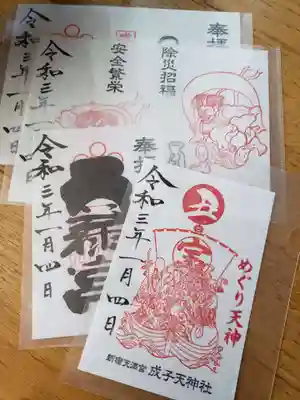 奉拝
令和三年
安全繁栄
令和三年
除災招福
奉拝
令和三年一月四日
令和三年一月四日
丑
宝
めぐり天神
新宿天満宮 成子天神社